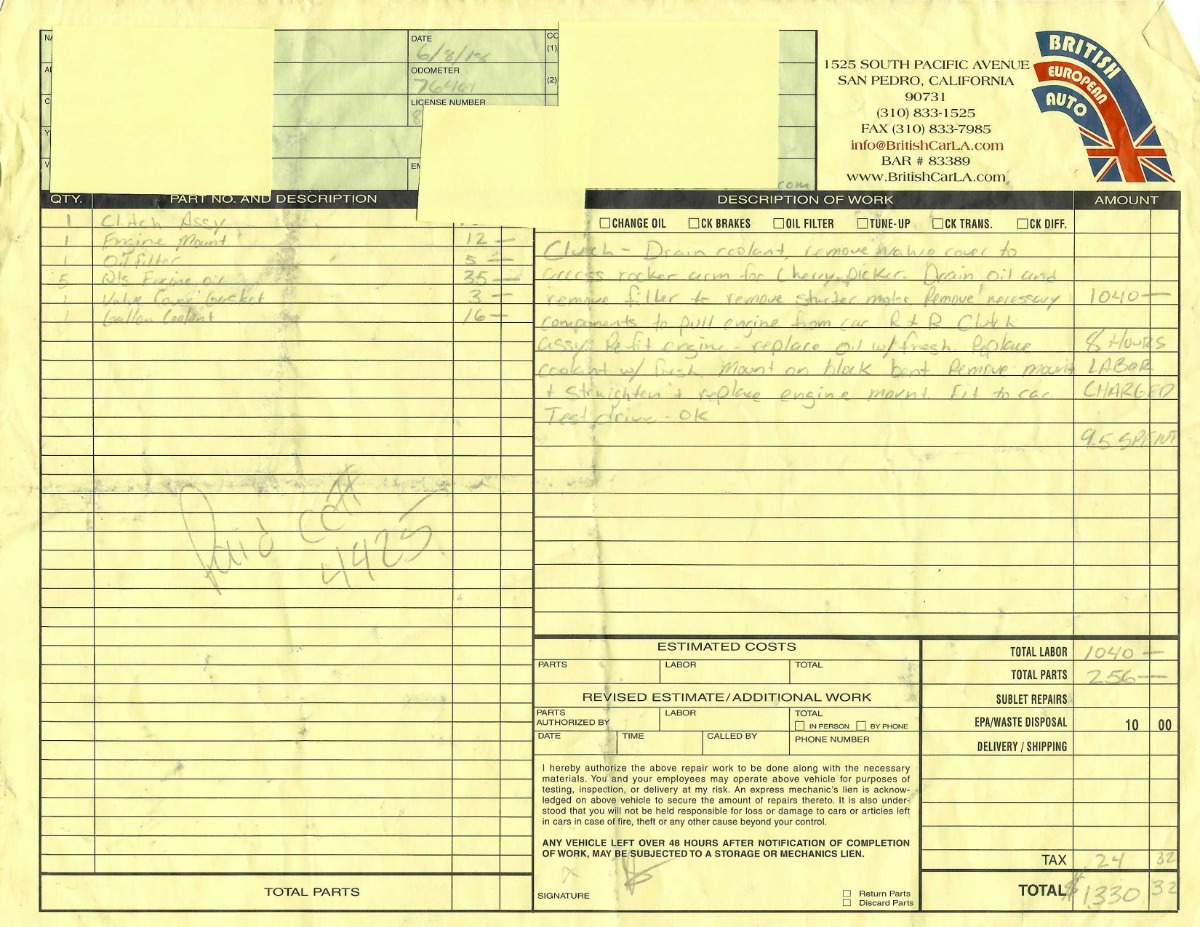 DATE
6/8/18
ODOMETER
LICENSE NUMBER
(1)
(2)
com
1525 SOUTH PACIFIC AVENUE
SAN PEDRO, CALIFORNIA
90731
(310) 833-1525
FAX (310) 833-7985
info@BritishCarLA.com
BAR # 83389
www.BritishCarLA.com
BRITISH
EUROPEAN
AUTO
QTY. PART NO. AND DESCRIPTION
1 Clutch Assy
1 Engine Mount 12 —
1 Oil filter 5 —
5 Qts Engine oil 35 —
1 Valve Cover Gasket 3 —
1 Gallon Coolant 16 —
Paid CC#
4425
TOTAL PARTS
DESCRIPTION OF WORK AMOUNT
CHANGE OIL CK BRAKES OIL FILTER TUNE-UP CK TRANS. CK DIFF.
Clutch - Drain coolant, remove valve cover to
access rocker arm for Cherry Picker. Drain oil and
remove filter to remove starter motor. Remove necessary 1040 —
components to pull engine from car R + R Clutch
assy. Refit engine - replace oil w/ fresh. Replace 8 HOURS
coolant w/ fresh. Mount on block bent Remove mount LABOR
+ straighten + replace engine mount. Fit to car CHARGED
Test drive - OK
9.5 SPENT
ESTIMATED COSTS
PARTS LABOR TOTAL
REVISED ESTIMATE/ADDITIONAL WORK
PARTS LABOR TOTAL
AUTHORIZED BY IN PERSON BY PHONE
DATE TIME CALLED BY PHONE NUMBER
I hereby authorize the above repair work to be done along with the necessary
materials. You and your employees may operate above vehicle for purposes of
testing, inspection, or delivery at my risk. An express mechanic's lien is acknow-
ledged on above vehicle to secure the amount of repairs thereto. It is also under-
stood that you will not be held responsible for loss or damage to cars or articles left
in cars in case of fire, theft or any other cause beyond your control.
ANY VEHICLE LEFT OVER 48 HOURS AFTER NOTIFICATION OF COMPLETION
OF WORK, MAY BE SUBJECTED TO A STORAGE OR MECHANICS LIEN.
x
SIGNATURE
Return Parts
Discard Parts
TOTAL LABOR 1040 —
TOTAL PARTS 256 —
SUBLET REPAIRS
EPA/WASTE DISPOSAL 10 00
DELIVERY / SHIPPING
TAX 24 32
TOTAL $1330 32